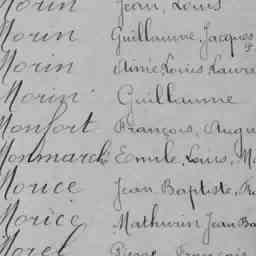 Morin Jean, Louis
Morin Guillaume, Jacques
Morin Aimé Louis Laure
Morin Guillaume
Monfort François, Augu
Monmarch Emile, Louis, M
Morice Jean Baptiste,
Morice Mathurin Jean Ba
Morel Pierre François